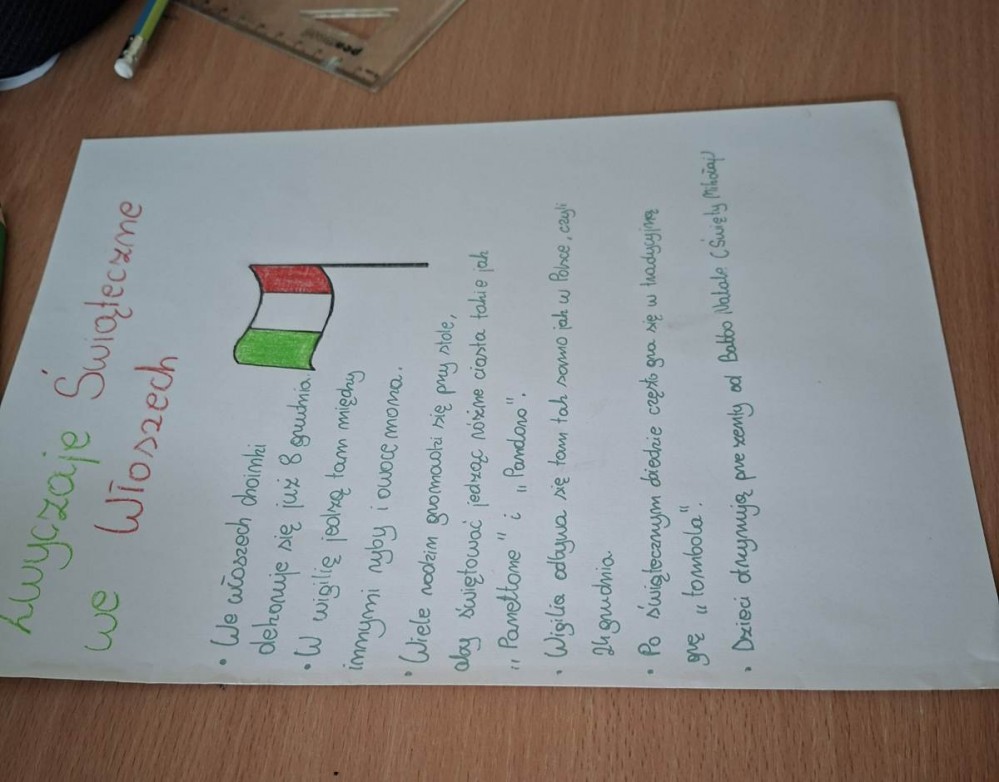 Zwyczaje Świąteczne
we Włoszech
• We włoszech choinki
dekoruje się już 8 grudnia.
• W wigilię jedzą tam między
innymi ryby i owoc moma.
• Wiele rodzin gromadzi się przy stole,
aby świętować jedząc różne ciasta takie jak
"Panettone" i "Pandoro".
• Wigilia odbywa się tam tak samo jak w Polsce, czyli
24 grudnia.
• Po świątecznym obiedzie często gra się w tradycyjną
grę "tombola".
• Dzieci otrzymują prezenty od Babbo Natale (Święty Mikołaj)